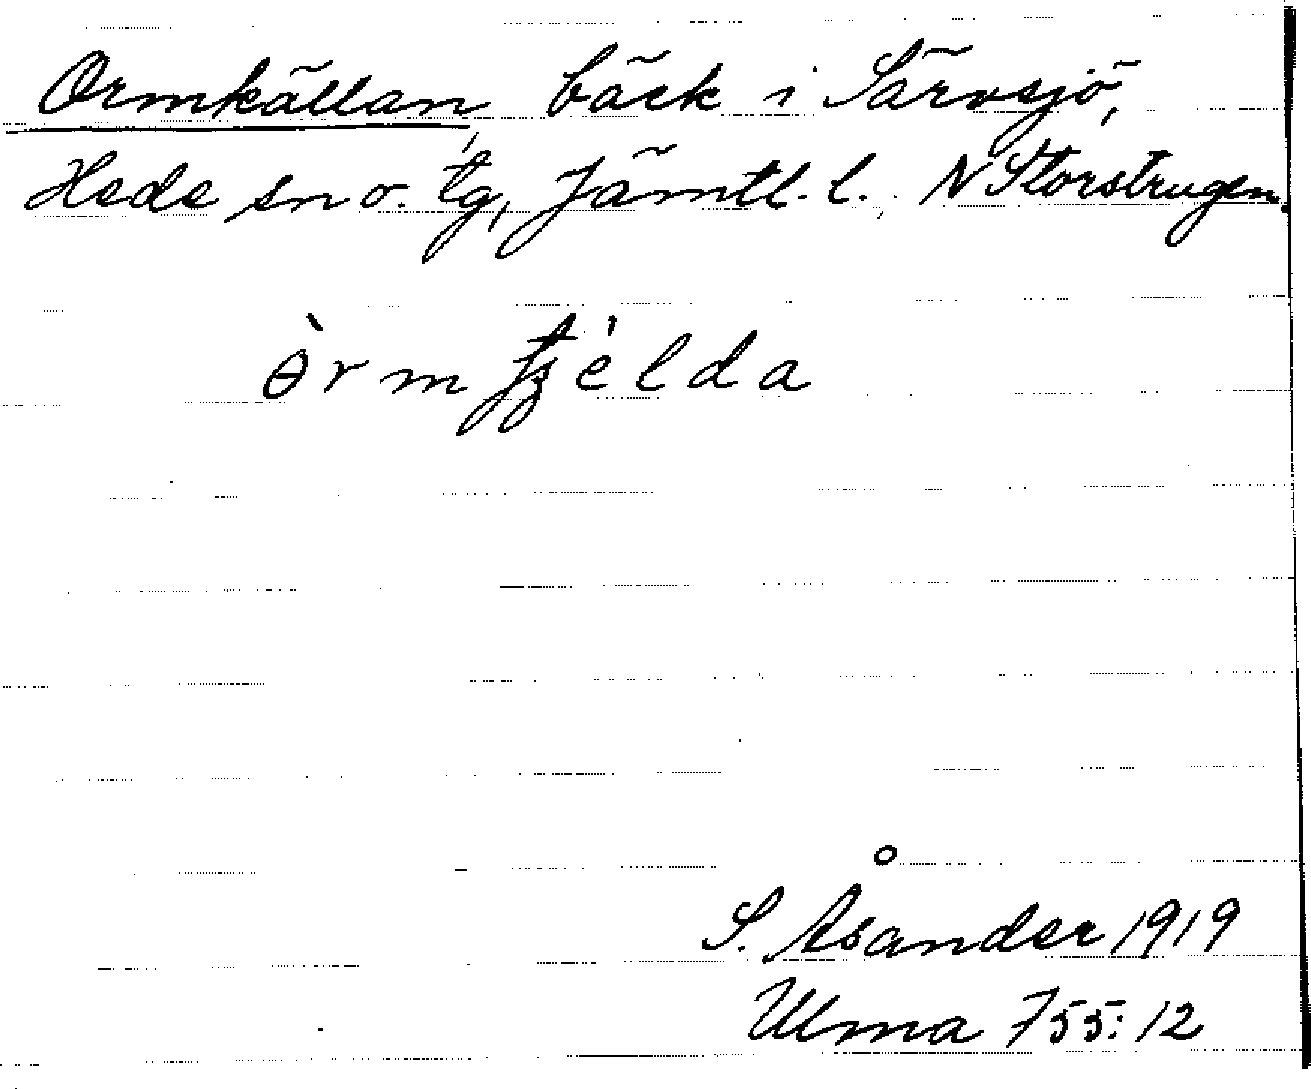 Ormkällan, bäck i Särvsjö,
Hede sn o. tg, Jämtl. l. N Storstrugen.
ɵ̀rmtʒélda
S. Åsander 1919
Ulma 755:12